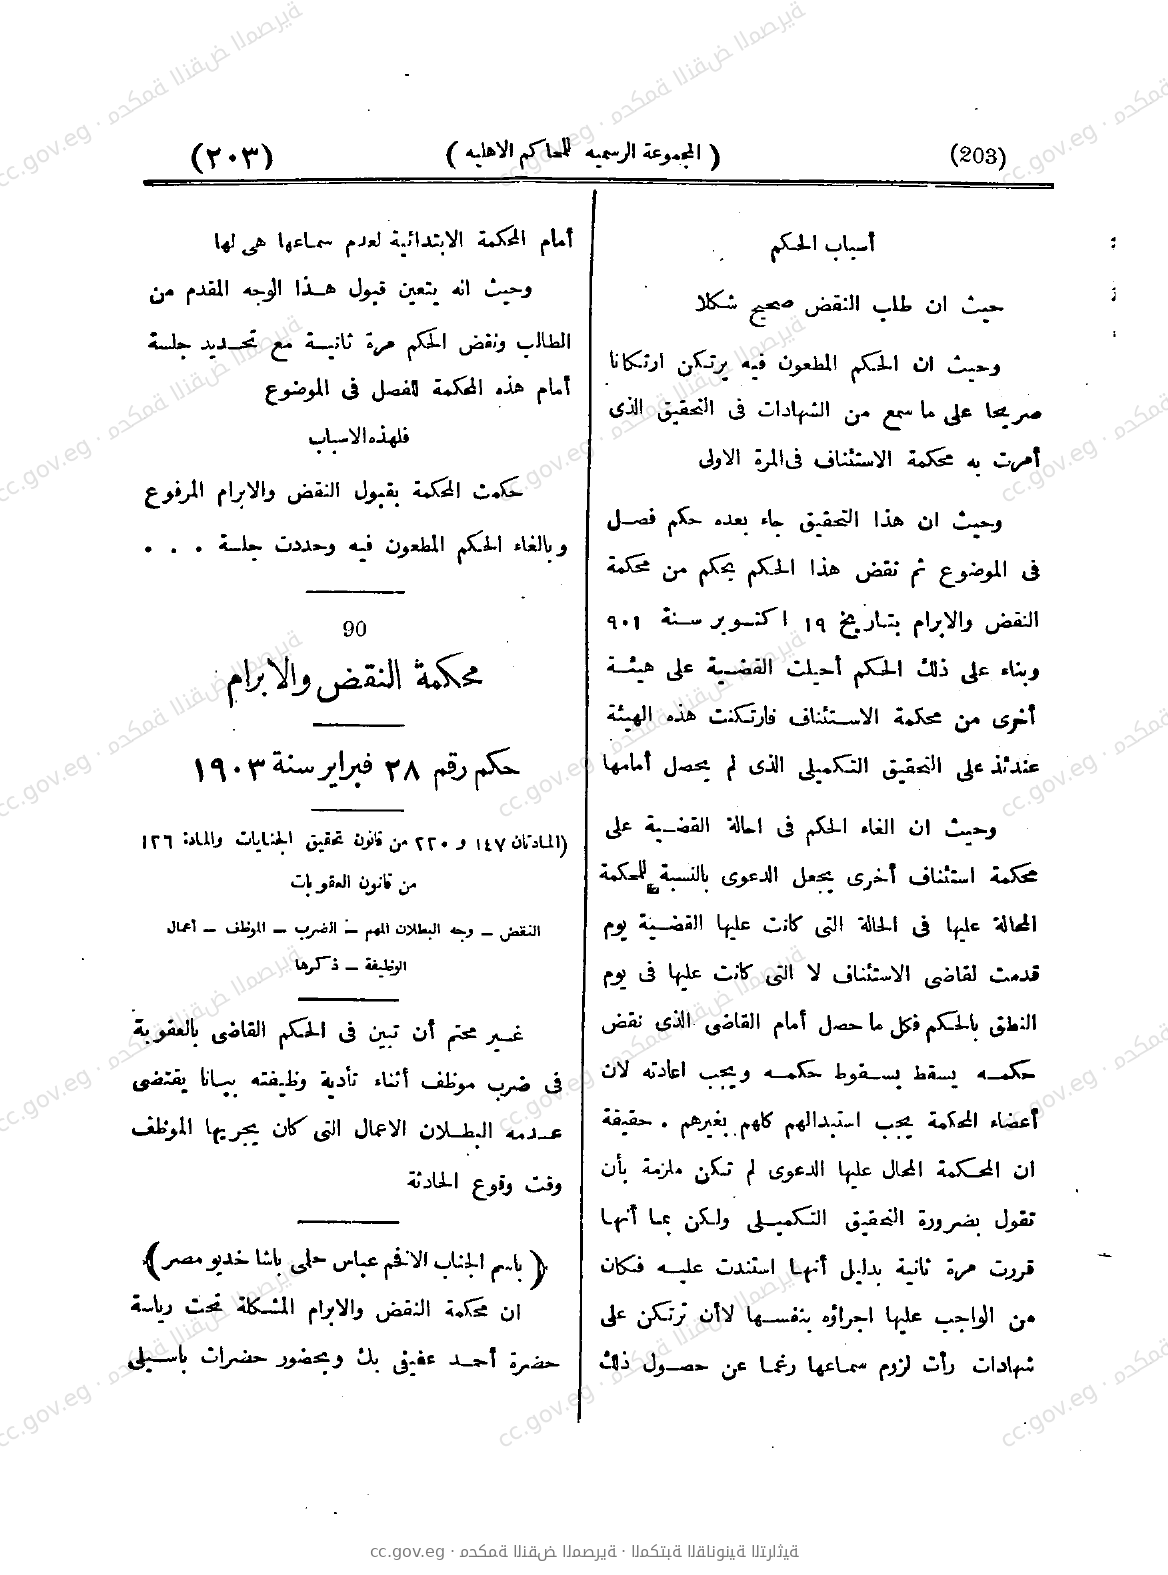 (203)
( المجموعة الرسميه للمحاكم الاهليه )
(٢٠٣)
أسباب الحكم
حيث ان طلب النقض صحيح شكلا
وحيث ان الحكم المطعون فيه يرتكن ارتكانا
صريحا على ما سمع من الشهادات فى التحقيق الذى
أمرت به محكمة الاستئناف فى المرة الاولى
وحيث ان هذا التحقيق جاء بعده حكم فصل
فى الموضوع ثم نقض هذا الحكم بحكم من محكمة
النقض والابرام بتاريخ ١٩ اكتوبر سنة ٩٠١
وبناء على ذلك الحكم أحيلت القضية على هيئة
أخرى من محكمة الاستئناف فارتكنت هذه الهيئة
عندئذ على التحقيق التكميلى الذى لم يحصل أمامها
وحيث ان الغاء الحكم فى احالة القضية على
محكمة استئناف أخرى يجعل الدعوى بالنسبة للمحكمة
المحالة عليها فى الحالة التى كانت عليها القضية يوم
قدمت لقاضى الاستئناف لا التى كانت عليها فى يوم
النطق بالحكم فكل ما حصل أمام القاضى الذى نقض
حكمه يسقط بسقوط حكمه ويجب اعادته لان
أعضاء المحكمة يجب استبدالهم كلهم بغيرهم . حقيقة
ان المحكمة المحال عليها الدعوى لم تكن ملزمة بأن
تقول بضرورة التحقيق التكميلى ولكن بما أنها
قررت مرة ثانية بدليل أنها استندت عليه فكان
من الواجب عليها اجراؤه بنفسها لاأن ترتكن على
شهادات رأت لزوم سماعها رغما عن حصول ذلك
أمام المحكمة الابتدائية لعدم سماعها هى لها
وحيث انه يتعين قبول هذا الوجه المقدم من
الطالب ونقض الحكم مرة ثانية مع تحديد جلسة
أمام هذه المحكمة للفصل فى الموضوع
فلهذه الاسباب
حكمت المحكمة بقبول النقض والابرام المرفوع
وبالغاء الحكم المطعون فيه وحددت جلسة . . .
90
محكمة النقض والابرام
حكم رقم ٢٨ فبراير سنة ١٩٠٣
(المادتان ١٤٧ و ٢٢٠ من قانون تحقيق الجنايات والمادة ١٢٦
من قانون العقوبات
النقض – وجه البطلان المهم – الضرب – الموظف – أعمال
الوظيفة – ذكرها
غير محتم أن تبين فى الحكم القاضى بالعقوبة
فى ضرب موظف أثناء تأدية وظيفته بيانا يقتضى
عدمه البطلان الاعمال التى كان يجريها الموظف
وقت وقوع الحادثة
( باسم الجناب الافخم عباس حلمى باشا خديو مصر )
ان محكمة النقض والابرام المشكلة تحت رياسة
حضرة أحمد عفيفى بك وبحضور حضرات باسيلى
cc.gov.eg · محكمة النقض المصرية · المكتبة القانونية التراثية